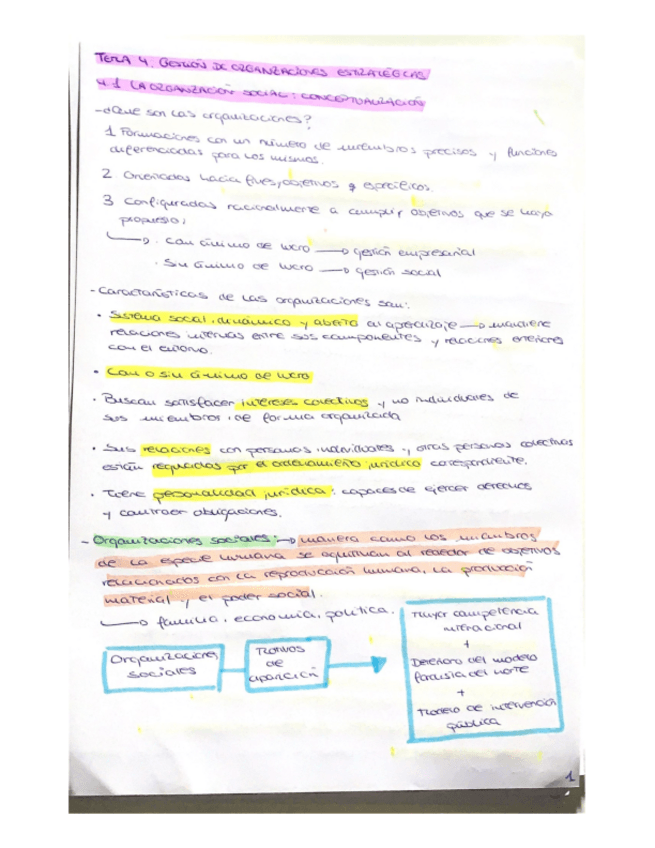 TEMA 4. GESTIÓN DE ORGANIZACIONES ESTRATÉGICAS
4.1 LA ORGANIZACIÓN SOCIAL: CONCEPTUALIZACIÓN
-¿Que son las organizaciones?
1 Formaciones con un número de miembros precisos y funciones
diferenciadas para los mismos.
2 Orientados hacia fines, objetivos específicos.
3 Configuradas racionalmente a cumplir objetivos que se haya
propuesto;
· Con ánimo de lucro → gestión empresarial
· Sin ánimo de lucro → gestión social
-Características de las organizaciones son:
• Sistema social, dinámico y abierto al aprendizaje → mantiene
relaciones internas entre sus componentes y relaciones exteriores
con el entorno.
• Con o sin ánimo de lucro
• Buscan satisfacer intereses colectivos y no individuales de
sus miembros, de forma organizada
• Sus relaciones con personas individuales y otras personas colectivas
están reguladas por el ordenamiento jurídico correspondiente.
• Tiene personalidad jurídica: capaces de ejercer derechos
y contraer obligaciones.
- Organizaciones sociales: → manera como los miembros
de la especie humana se al rededor de objetivos
relacionados con la reproducción humana, la producción
material y el poder social.
→ familia, economía, política.
Organizaciones
sociales
Motivos
de
aparición
Mayor competencia
internacional
+
Deterioro del modelo
del norte
+
Modelo de intervención
pública
1